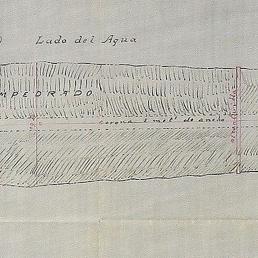 ) Lado del Agua
MPEDRADO
corona 1 metº de ancho